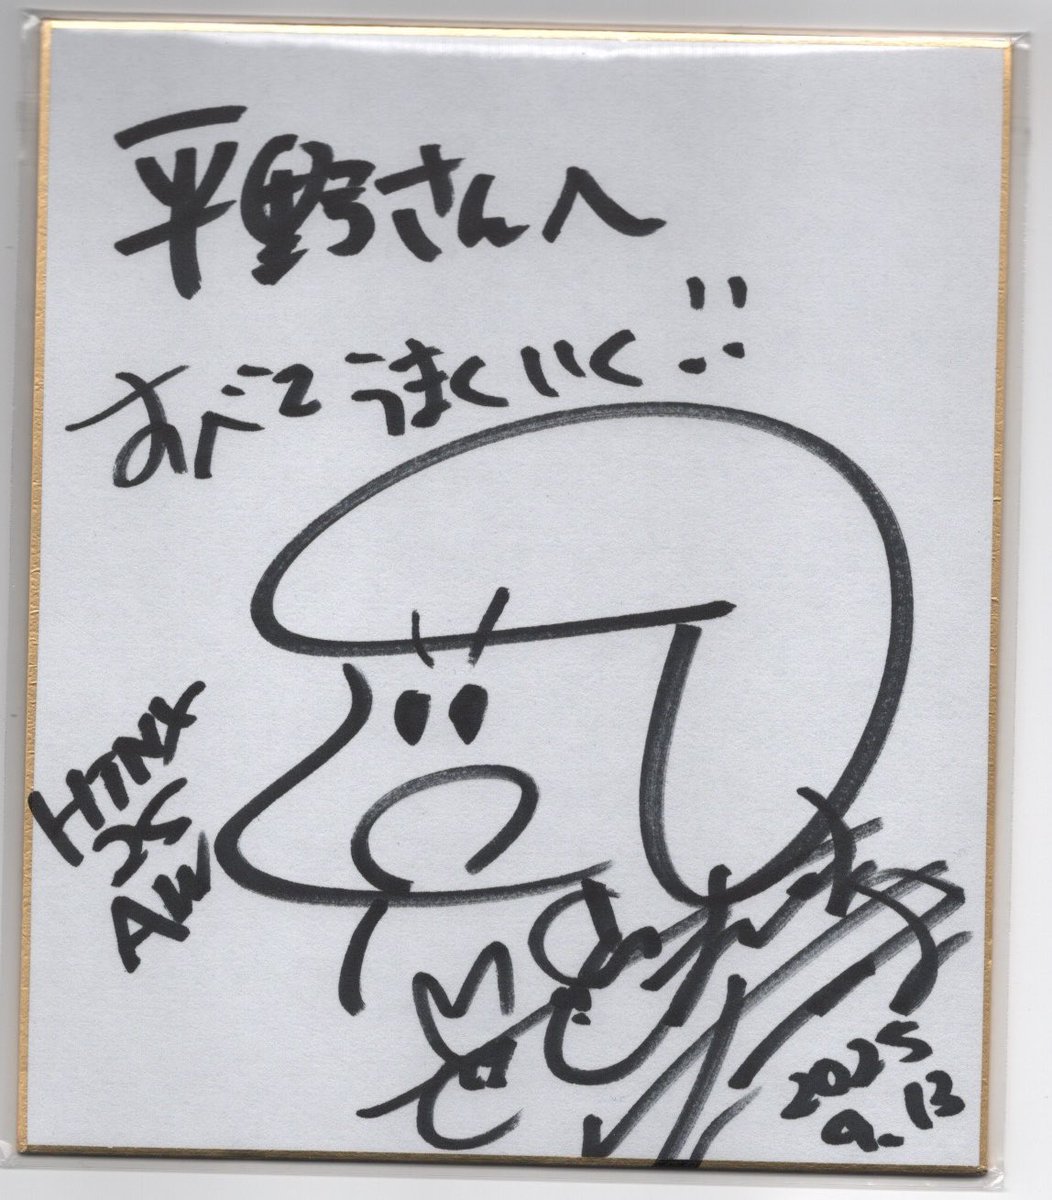 平野さんへ
すべてうまくいく!!
HTNX
25
AW
2025
9.13